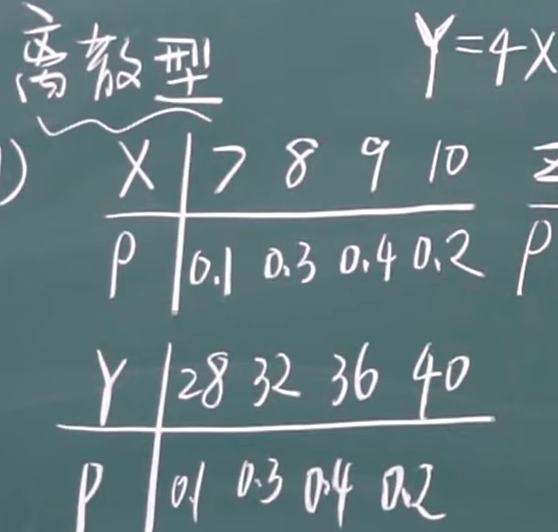 离散型 Y=4X
1) X 7 8 9 10
P 0.1 0.3 0.4 0.2 P
Y 28 32 36 40
P 0.1 0.3 0.4 0.2